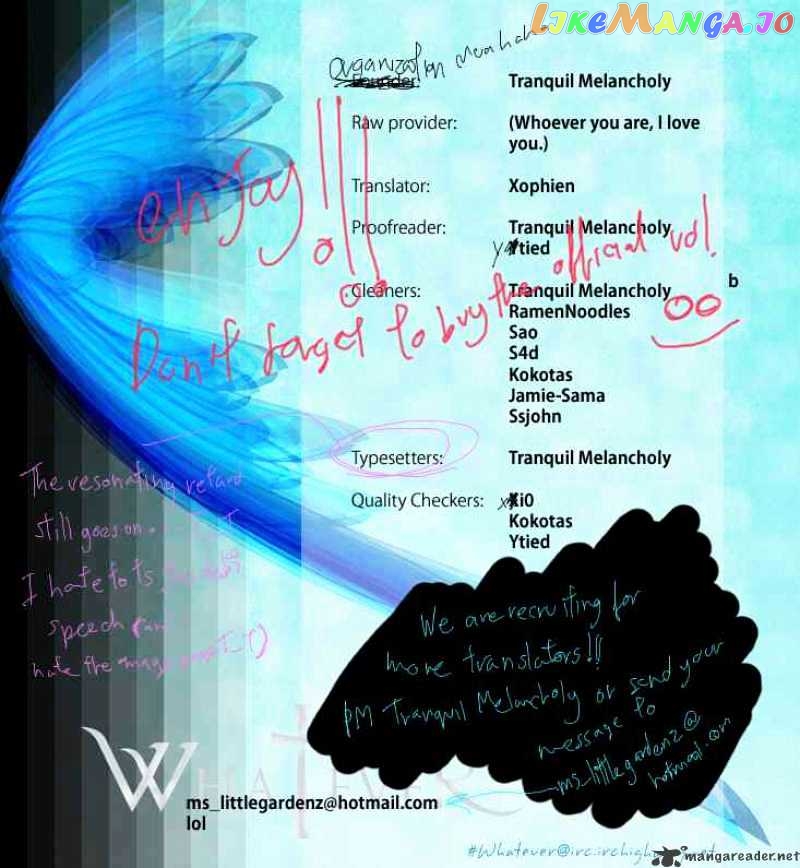 LIKEMANGA.IO
Organization Muahaha
Founder: Tranquil Melancholy
Raw provider: (Whoever you are, I love
you.)
Translator: Xophien
Proofreader: Tranquil Melancholy
Ytied
Cleaners: Tranquil Melancholy b
RamenNoodles
Sao
S4d
Kokotas
Jamie-Sama
Ssjohn
Typesetters: Tranquil Melancholy
Quality Checkers: Xi0
Kokotas
Ytied
enjoy!!!
Don't forget to buy the official vol.
The resonating retard
still goes on
I hate to ts
speech
hate the
We are recruiting for
more translators!!!
PM Tranquil Melancholy or send your
message to
ms_littlegardenz@
hotmail.com
WHATEVER
ms_littlegardenz@hotmail.com
lol
mangareader.net